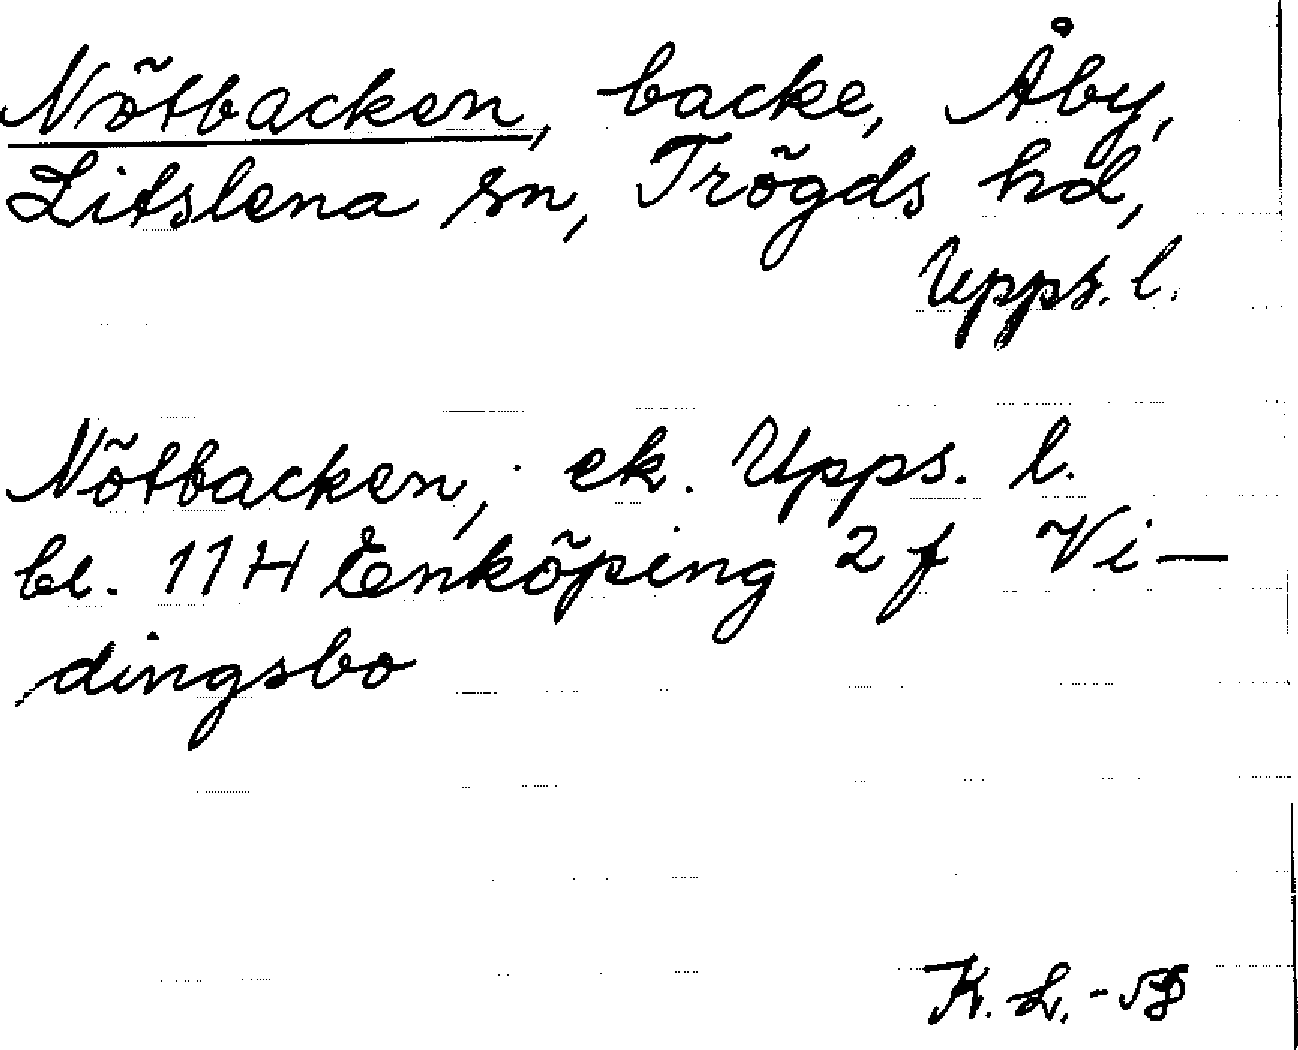 Nötbacken, backe, Åby,
Litslena sn, Trögds hd,
Upps. l.
Nötbacken, ek. Upps. l.
bl. 11 H Enköping 2 f Vi-
dingsbo
K. L. -